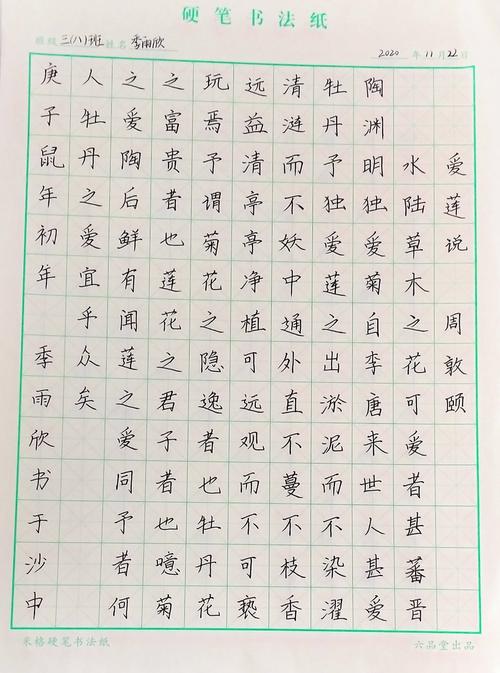 硬笔书法纸
班级 三(八)班 姓名 季雨欣 2020 年 11 月 22 日
爱莲说 周敦颐
水陆草木之花可爱者甚蕃晋
陶渊明独爱菊自李唐来世人甚爱
牡丹予独爱莲之出淤泥而不染濯
清涟而不妖中通外直不蔓不枝香
远益清亭亭净植可远观而不可亵
玩焉予谓菊花之隐逸者也牡丹花
之富贵者也莲花之君子者也噫菊
之爱陶后鲜有闻莲之爱同予者何
人牡丹之爱宜乎众矣
庚子鼠年初年 季雨欣书于沙中
米格硬笔书法纸 六品堂出品